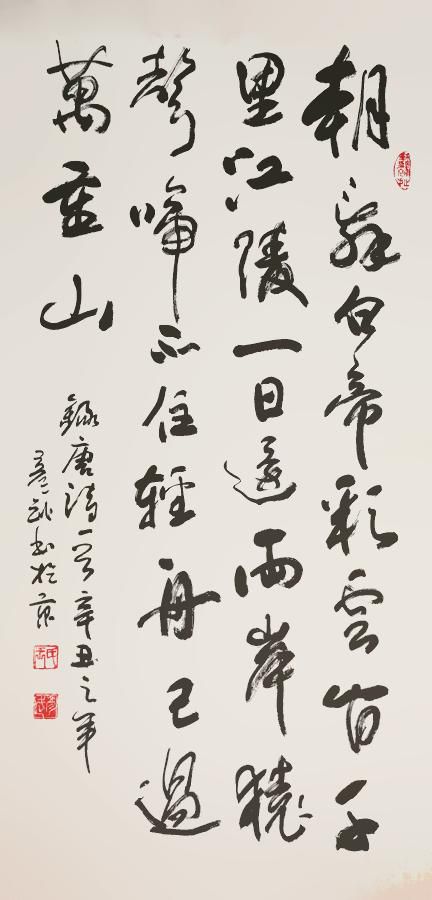 朝辭白帝彩雲間千
里江陵一日還兩岸猿
聲啼不住輕舟已過
萬重山
錄唐詩一首辛丑之年
武書於京